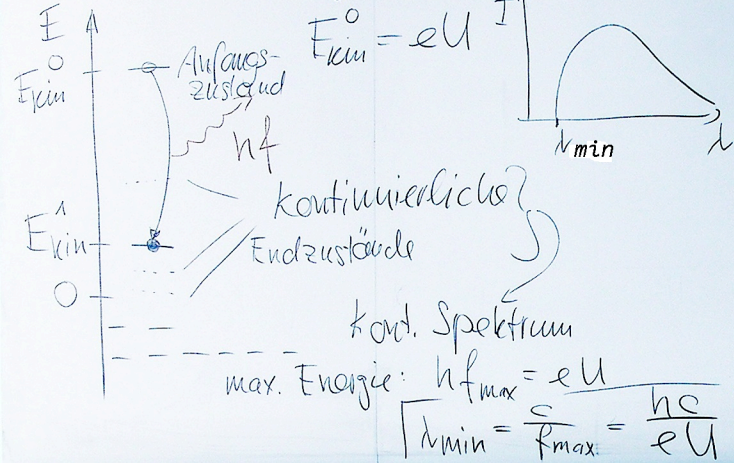 E
E⁰kin
Anfangs-
zustand
hf
E⁰kin = eU
I
λmin
λ
kontinuierliche
Endzustände
E¹kin
0
kont. Spektrum
max. Energie: hfmax = eU
λmin = c/fmax = hc/eU